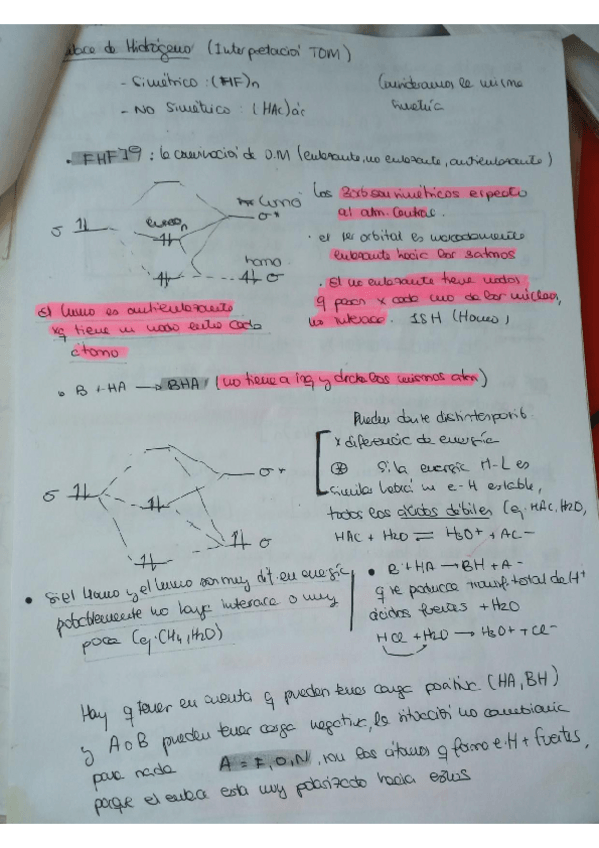 Hidrógeno (Interpretación TOM)
- Simétrico : (HF)n
- NO Simétrico : (HAc)ác
Consideramos la misma
simetría
• FHF]⊖ : la combinación de O.M (enlazante, no enlazante, antienlazante)
Lumo
σ*
σ
homo
σ
Los 3 orb son simétricos respecto
al atm. central.
• el 1er orbital es marcadamente
enlazante hacia los 2 atmos
. El no enlazante tiene nodos
q pasan x cada uno de los núcleos,
1SH (Homo)
El lumo es antienlazante
xq tiene un nodo entre cada
átomo
• B + HA → BHA (no tiene a izq y drcha los mismos atm)
Pueden darse distintas posib:
x diferencia de energía
Si la energía H-L es
similar habrá un e-H estable,
todos los ácidos débiles (ej: HAc, H2O,
HAC + H2O ⇌ H3O+ + AC-
σ
σ*
σ
• Si el Homo y el Lumo son muy dif. en energía,
probablemente no haya interacc o muy
poca (ej: CH4, H2O)
• B + HA → BH + A-
q se produzca transf. total de H+
ácidos fuertes + H2O
HCl + H2O → H3O+ + Cl-
Hay q tener en cuenta q pueden tener carga positiva (HA, BH)
y A o B pueden tener carga negativa, la situación no cambiaría
para nada A = F, O, N, son los átomos q forman e-H + fuertes,
porque el enlace esta muy polarizado hacia estos